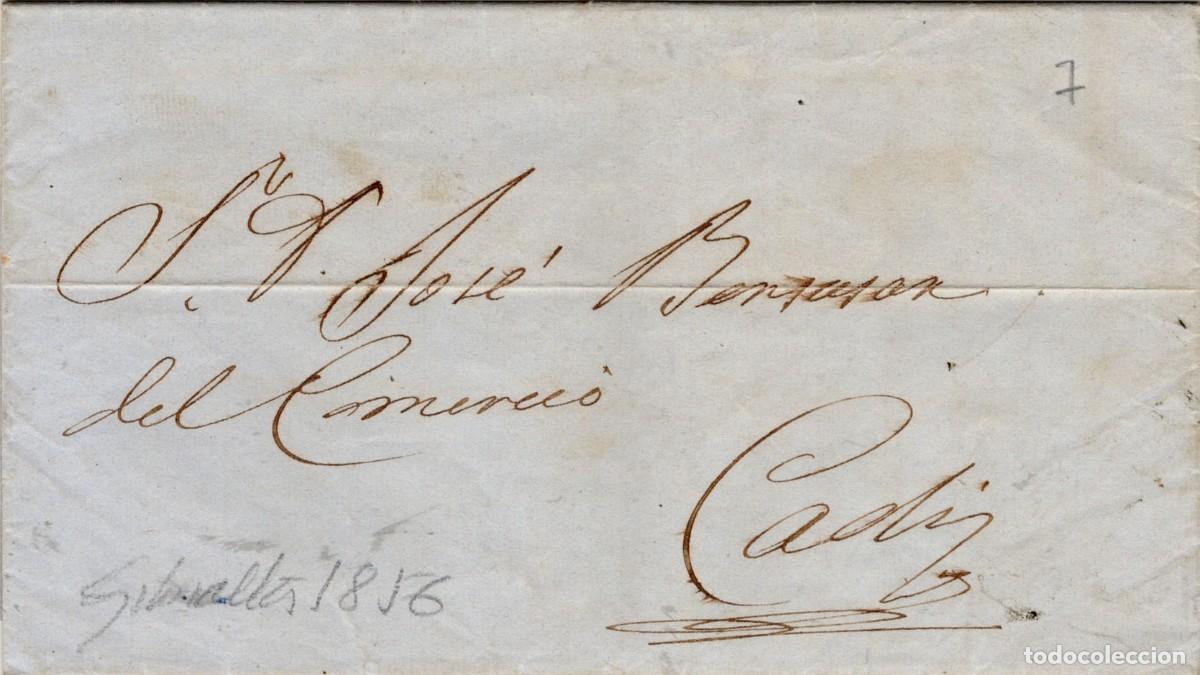 7
Sr. D. José Bensusan
del Comercio
Cadiz
Gibraltar 1856
todocoleccion